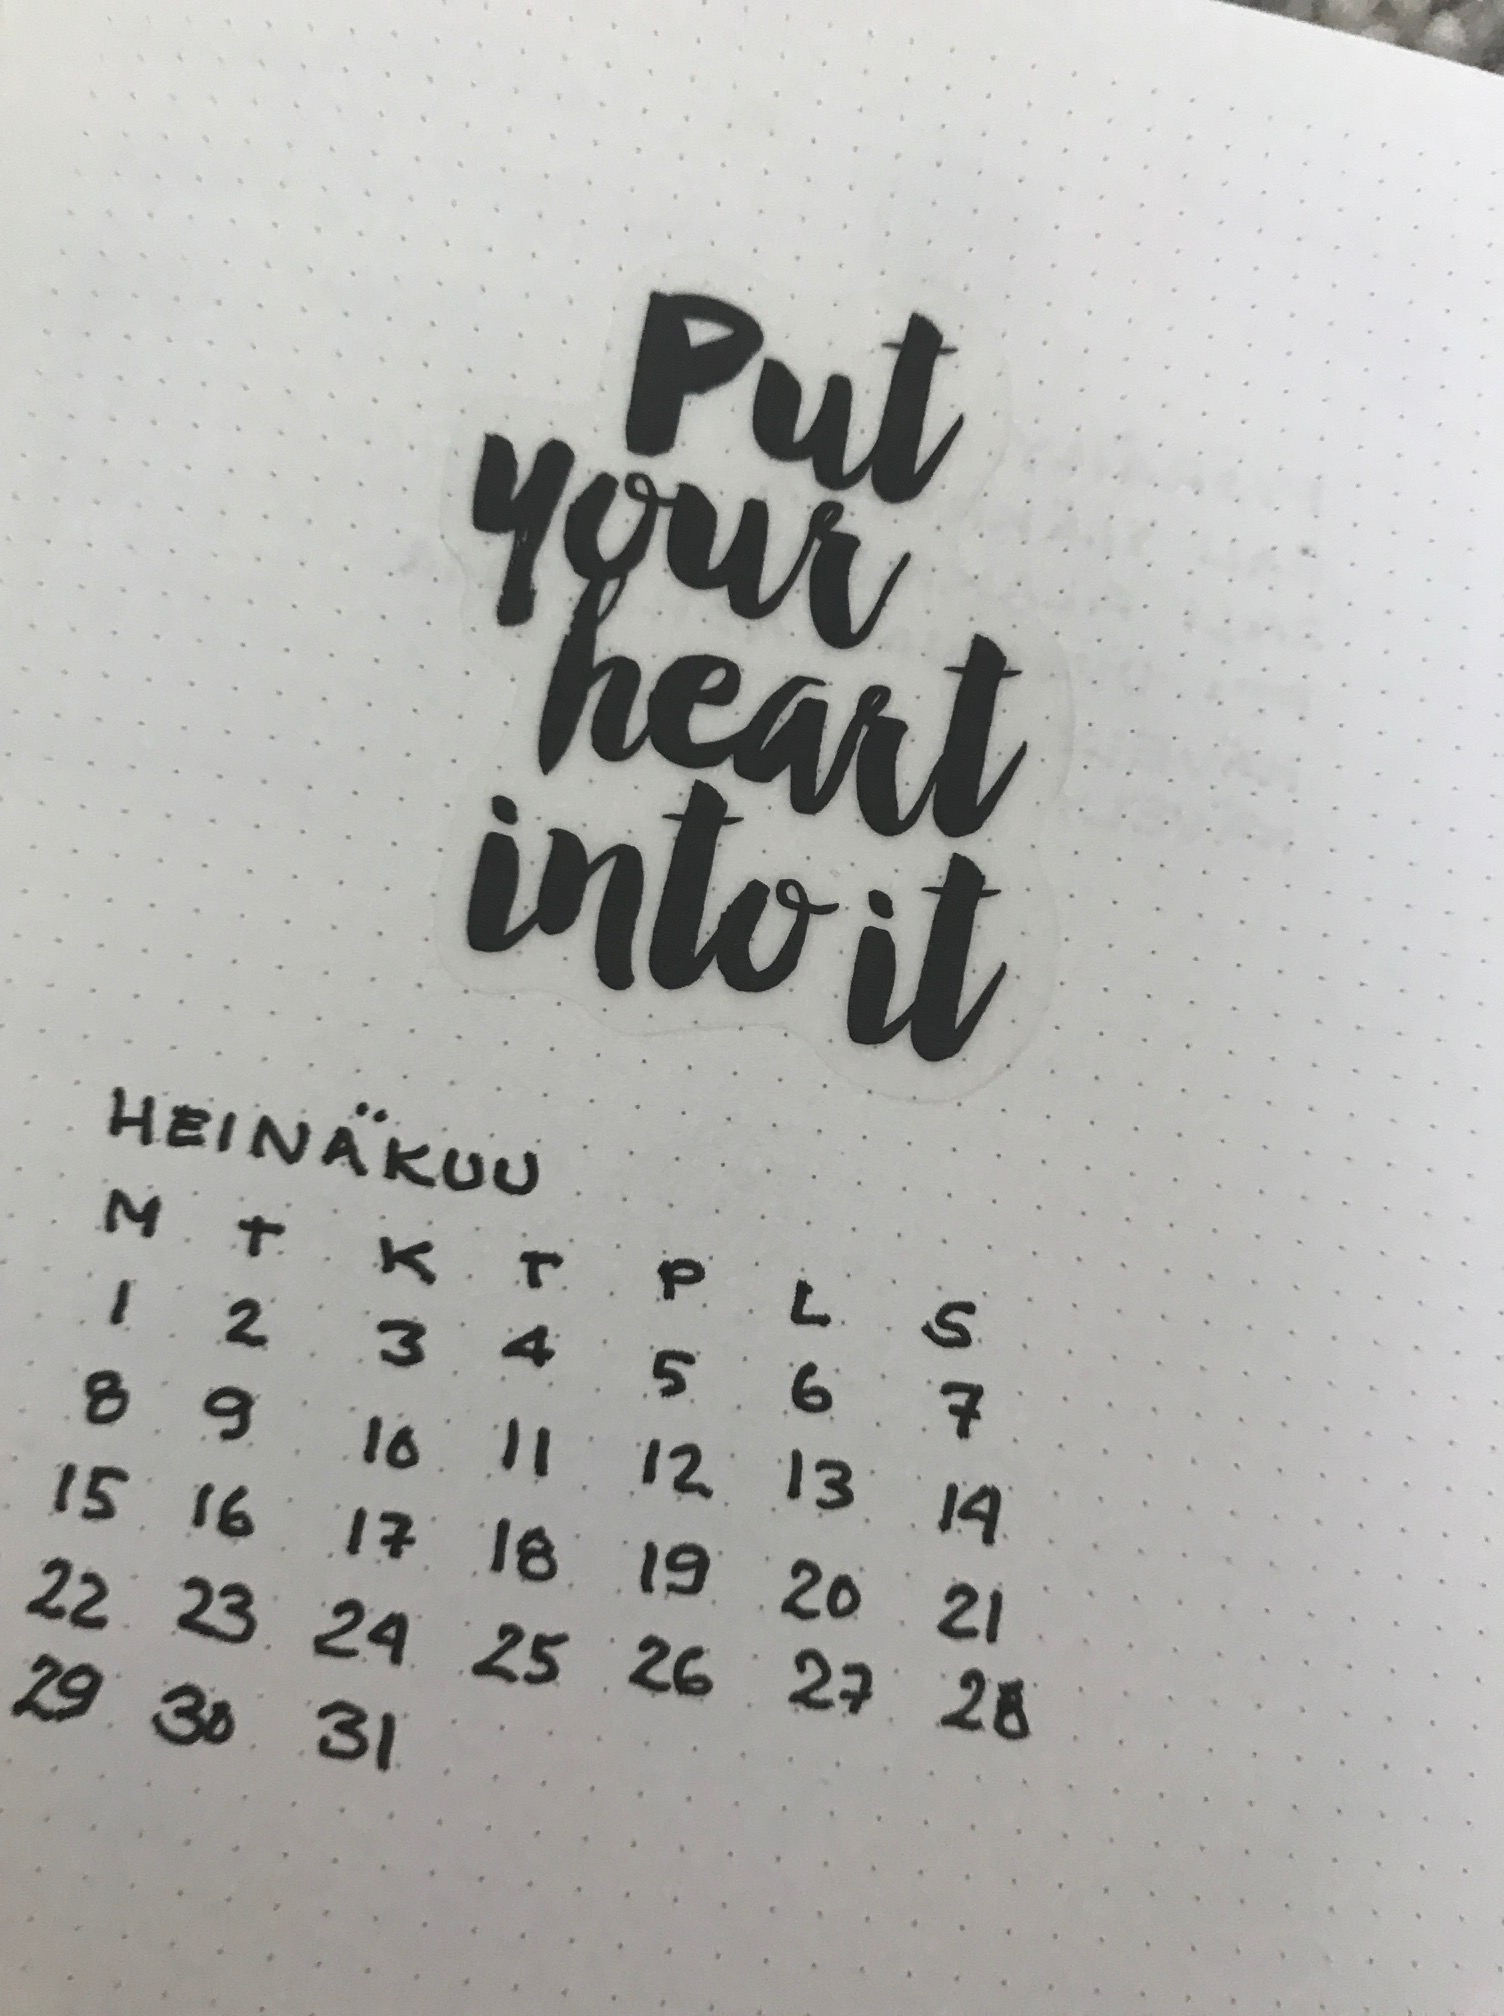 Put
your
heart
into it
HEINÄKUU
M T K T P L S
1 2 3 4 5 6 7
8 9 10 11 12 13 14
15 16 17 18 19 20 21
22 23 24 25 26 27 28
29 30 31